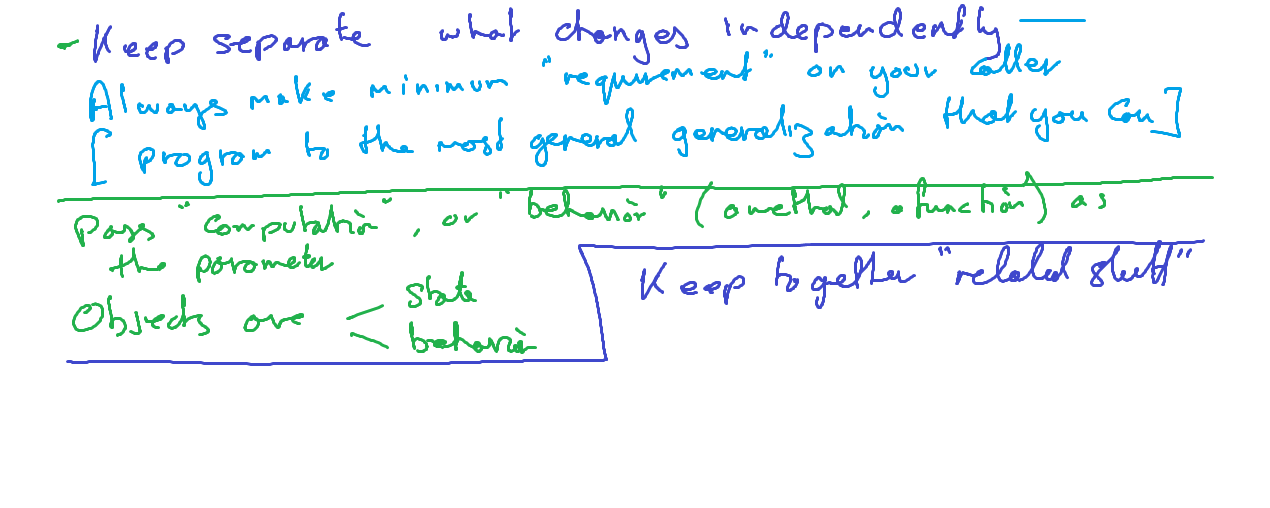 - Keep separate what changes independently —
Always make minimum "requirement" on your caller
[ program to the most general generalization that you can ]
Pass "computation", or "behavior" (a method, a function) as
the parameter
Keep together "related stuff"
Objects are < state
behavior